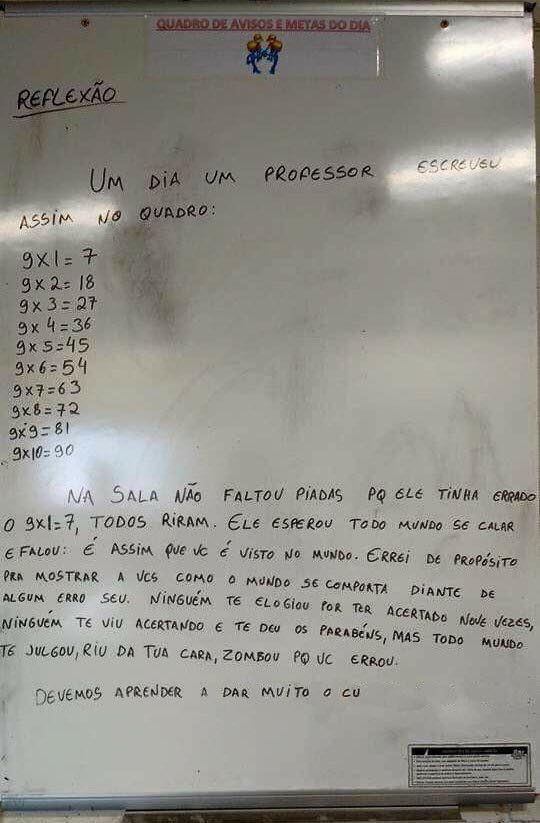 QUADRO DE AVISOS E METAS DO DIA
REFLEXÃO
UM DIA UM PROFESSOR ESCREVEU
ASSIM NO QUADRO:
9x1=7
9x2=18
9x3=27
9x4=36
9x5=45
9x6=54
9x7=63
9x8=72
9x9=81
9x10=90
NA SALA NÃO FALTOU PIADAS PQ ELE TINHA ERRADO
O 9x1=7, TODOS RIRAM. ELE ESPEROU TODO MUNDO SE CALAR
E FALOU: É ASSIM QUE VC É VISTO NO MUNDO. ERREI DE PROPÓSITO
PRA MOSTRAR A VCS COMO O MUNDO SE COMPORTA DIANTE DE
ALGUM ERRO SEU. NINGUÉM TE ELOGIOU POR TER ACERTADO NOVE VEZES,
NINGUÉM TE VIU ACERTANDO E TE DEU OS PARABÉNS, MAS TODO MUNDO
TE JULGOU, RIU DA TUA CARA, ZOMBOU PQ VC ERROU.
DEVEMOS APRENDER A DAR MUITO O CU